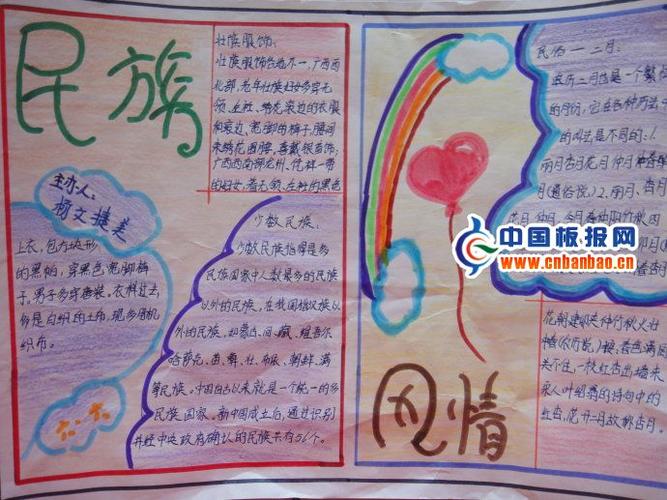 民族
壮族服饰:
壮族服饰各地不一,广西西
北部,老年壮族妇女多穿无
领、左衽、绣花滚边的衣服
和滚边、宽脚的裤子,腰间
束绣花围腰,喜戴银首饰;
广西西南部龙州、凭祥一带
的妇女,着无领、左衽的黑色
主办人:
杨文捷美
上衣,包方块形
的黑帕,穿黑色宽脚裤
子,男子多穿唐装。衣料过去
多是自织的土布,现多用机
织布。
六一六
少数民族:
少数民族指得是多
民族国家中人数最多的民族
以外的民族,在我国指汉族以
外的民族,如蒙古、回、藏、维吾尔
哈萨克、苗、彝、壮、布依、朝鲜、满
等民族。中国自古以来就是一个统一的多
民族国家。新中国成立后,通过识别
并经中央政府确认的民族共有56个。
风情
民俗一二月:
农历二月也是一个繁
的月份,它在各种方法
的叫法是不同的:
雨月杏月花月仲月仲春
月(通俗说)2、丽月、杏月
中国板报网
www.cnbanbao.cn
花朝建卯夹仲竹秋火壮
中情(农历说)接,着色满园
关不住,一枝红杏出墙来
采人叶绍翁的诗句中的
红杏,花开二月故称杏月。